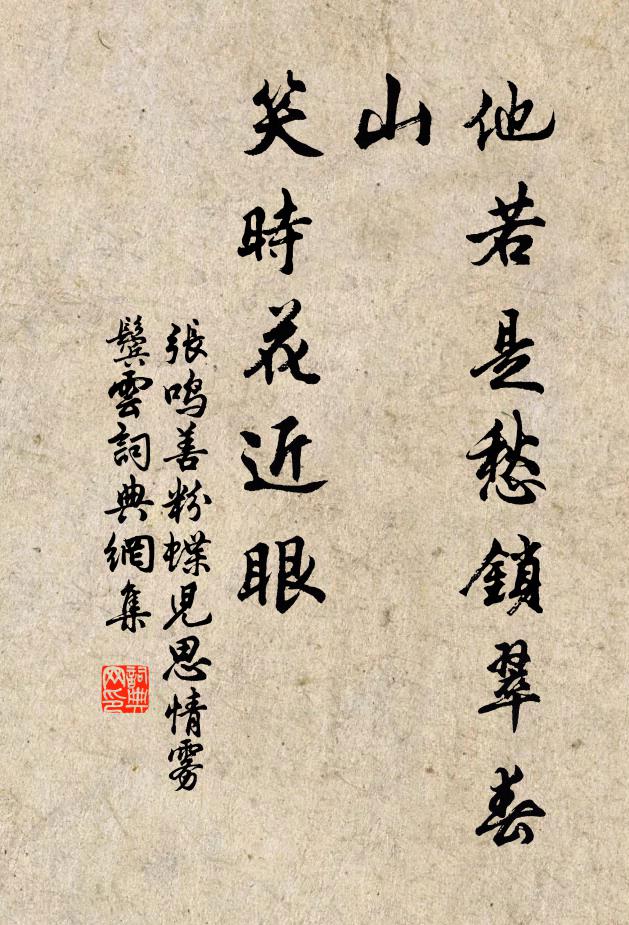 他若是愁鎖翠春
山
笑時花近眼
張鳴善粉蝶見思情雾
鬓雲詞典網集
詞典网印